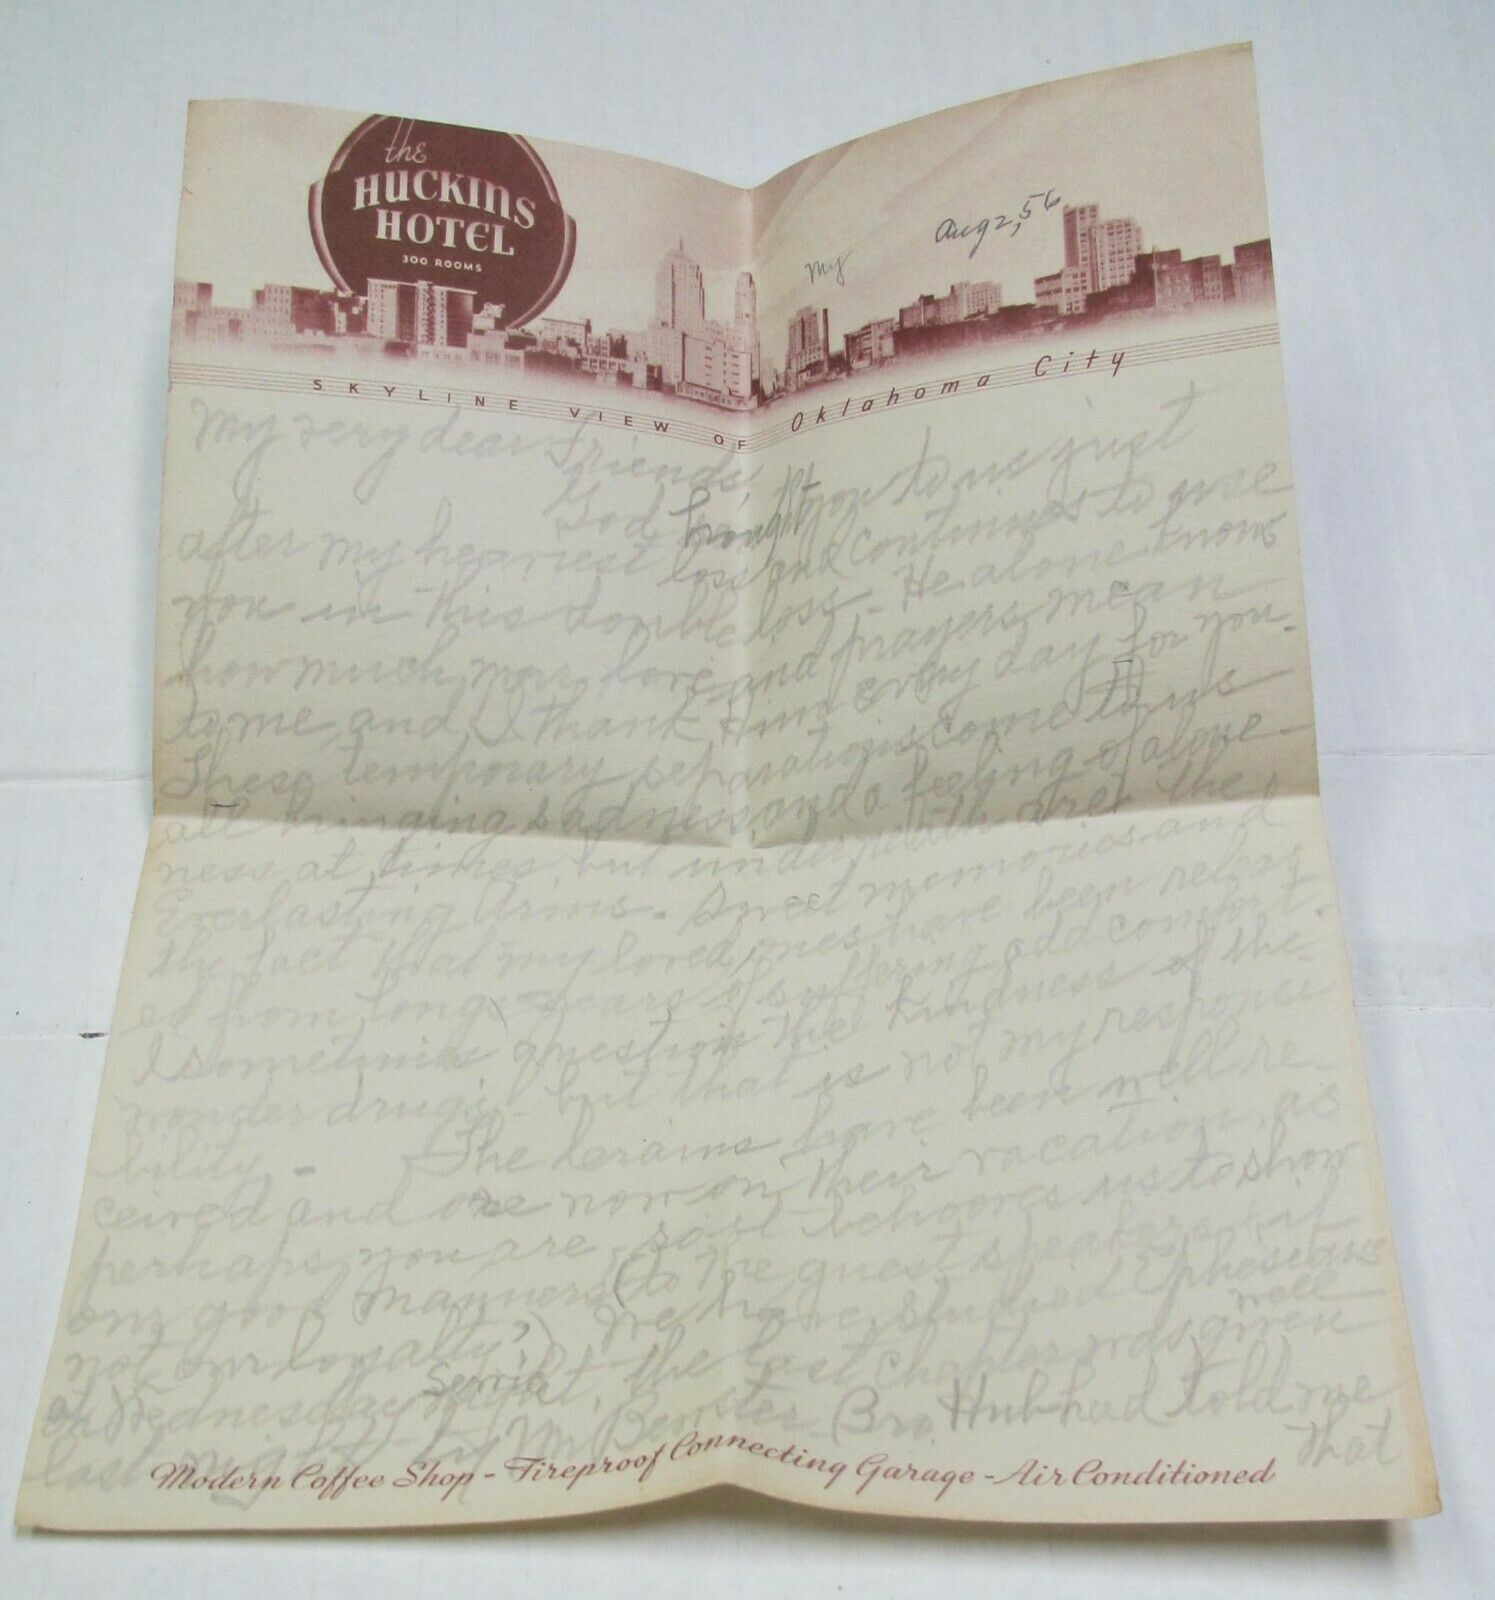 the
HUCKINS
HOTEL
300 ROOMS
Aug 2, 56
My
SKYLINE VIEW OF Oklahoma City
My very dear Friends,
God brought you to us just
after my heaviest loss and continues to use
you in this double loss - He alone knows
how much your love and prayers mean
to me and I thank Him every day for you.
These temporary separations come to us
all bringing sadness and a feeling of alone-
ness at times, but underneath are the
Everlasting Arms. Sweet memories and
the fact that my loved ones have been releas-
ed from long years of suffering add comfort.
I sometimes question the kindness of the
wonder drugs - but that is not my responsi
bility - The Crains have been well re-
ceived and are now on their vacation, as
perhaps you are, so it behooves us to show
our good manners (to the guest speakers) if
not our loyalty,) We have studied Ephesians
at Wednesday night service, the last chapter was well given
last night - by Mr Bender. Bro. Hub had told me
that
Modern Coffee Shop - Fireproof Connecting Garage - Air Conditioned